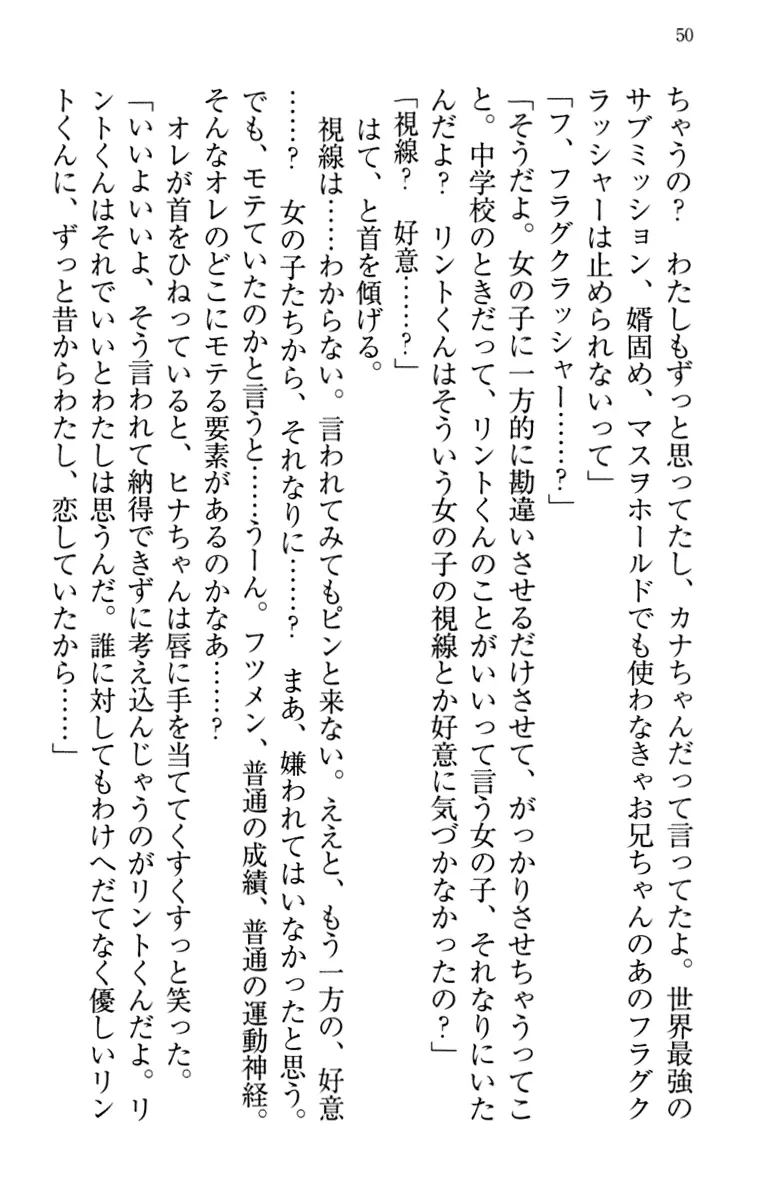 50
ちゃうの？　わたしもずっと思ってたし、カナちゃんだって言ってたよ。世界最強の
サブミッション、婿固め、マスヲホールドでも使わなきゃお兄ちゃんのあのフラグク
ラッシャーは止められないって」
「フ、フラグクラッシャー……？」
「そうだよ。女の子に一方的に勘違いさせるだけさせて、がっかりさせちゃうってこ
と。中学校のときだって、リントくんのことがいいって言う女の子、それなりにいた
んだよ？　リントくんはそういう女の子の視線とか好意に気づかなかったの？」
「視線？　好意……？」
はて、と首を傾げる。
視線は……わからない。言われてみてもピンと来ない。ええと、もう一方の、好意
……？　女の子たちから、それなりに……？　まあ、嫌われてはいなかったと思う。
でも、モテていたのかと言うと……うーん。フツメン、普通の成績、普通の運動神経。
そんなオレのどこにモテる要素があるのかなあ……？
オレが首をひねっていると、ヒナちゃんは唇に手を当ててくすくすっと笑った。
「いいよいいよ、そう言われて納得できずに考え込んじゃうのがリントくんだよ。リ
ントくんはそれでいいとわたしは思うんだ。誰に対してもわけへだてなく優しいリン
トくんに、ずっと昔からわたし、恋していたから……」